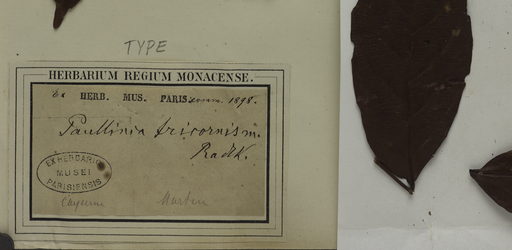 TYPE
HERBARIUM REGIUM MONACENSE.
Ex HERB. MUS. PARIS. comm. 1898.
Paullinia tricornis m.
Radlk.
EX HERBARIO
MUSEI
PARISIENSIS
Cayenne Martin